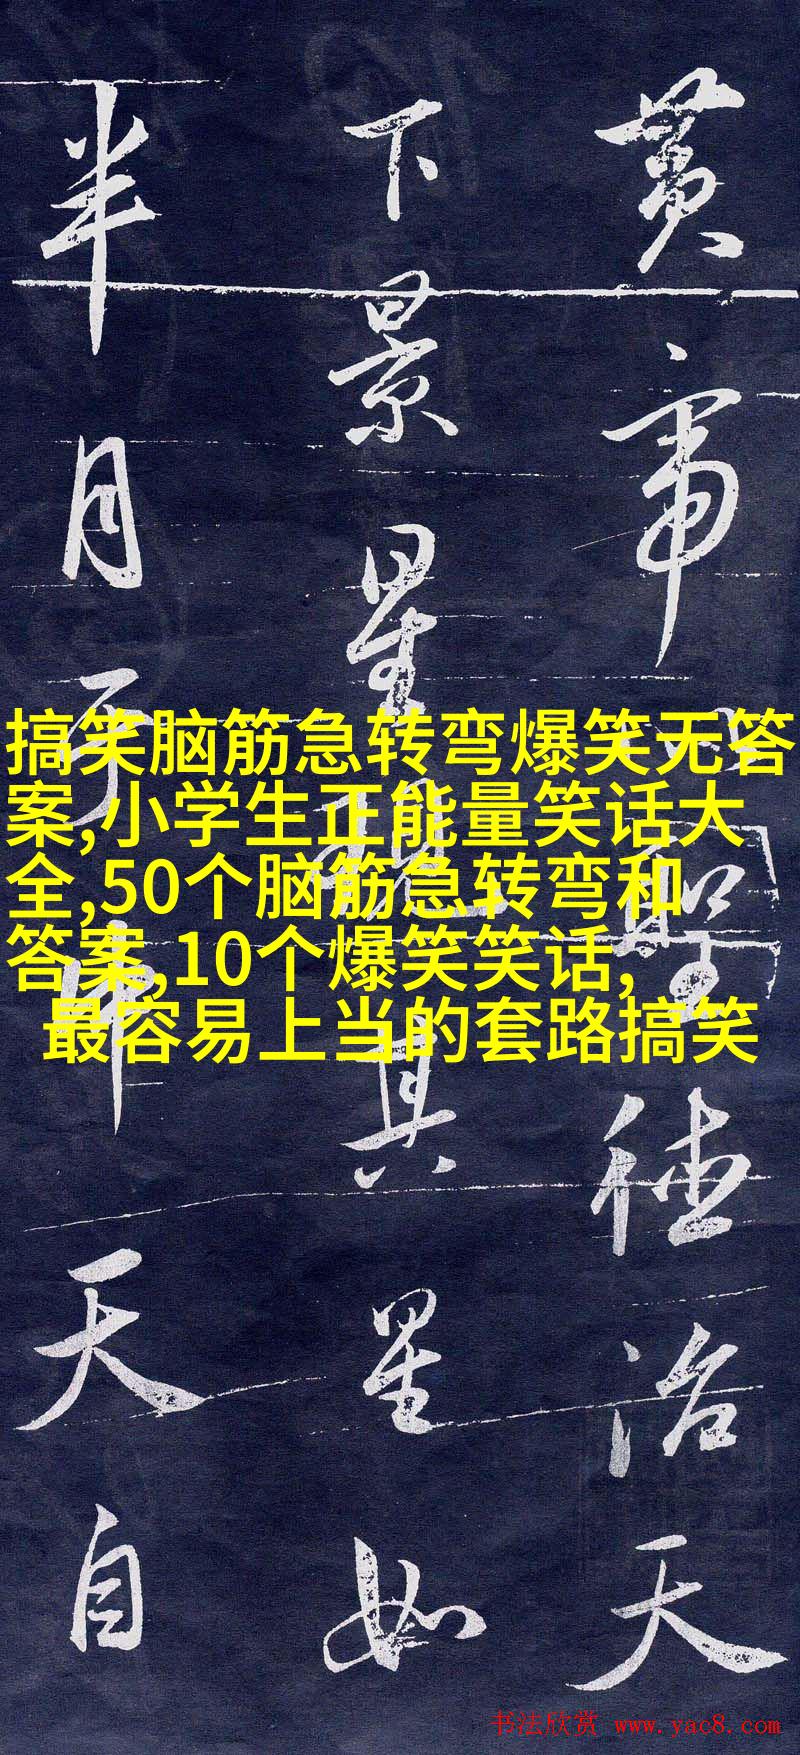 黄帝以聖德治天
下景星其星如
半月于中天自
搞笑脑筋急转弯爆笑无答
案,小学生正能量笑话大
全,50个脑筋急转弯和
答案,10个爆笑笑话,
最容易上当的套路搞笑
书法欣赏 www.yac8.com